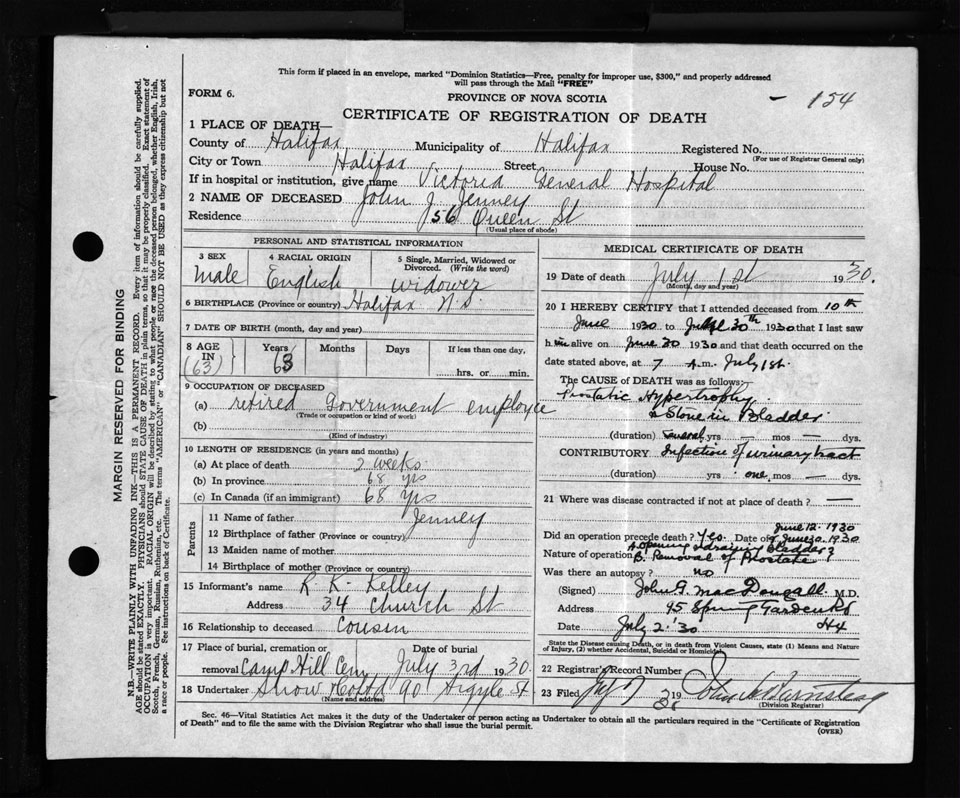 This form if placed in an envelope, marked "Dominion Statistics—Free, penalty for improper use, $300," and properly addressed
will pass through the Mail "FREE"
FORM 6.
PROVINCE OF NOVA SCOTIA
- 154
CERTIFICATE OF REGISTRATION OF DEATH
1 PLACE OF DEATH—
County of Halifax Municipality of Halifax Registered No.
(For use of Registrar General only)
City or Town Halifax Street House No.
If in hospital or institution, give name Victoria General Hospital
2 NAME OF DECEASED John J. Jenney
Residence 56 Queen St
(Usual place of abode)
PERSONAL AND STATISTICAL INFORMATION
3 SEX 4 RACIAL ORIGIN 5 Single, Married, Widowed or
Divorced. (Write the word)
Male English widower
6 BIRTHPLACE (Province or country) Halifax N.S.
7 DATE OF BIRTH (month, day and year)
8 AGE IN Years Months Days If less than one day,
(63) 63 hrs. or min.
9 OCCUPATION OF DECEASED
(a) retired Government employee
(Trade or occupation or kind of work)
(b)
(Kind of industry)
10 LENGTH OF RESIDENCE (in years and months)
(a) At place of death 2 weeks
(b) In province 68 yrs
(c) In Canada (if an immigrant) 68 yrs
Parents
11 Name of father Jenney
12 Birthplace of father (Province or country)
13 Maiden name of mother
14 Birthplace of mother (Province or country)
15 Informant's name R K. Kelley
Address 34 Church St
16 Relationship to deceased Cousin
17 Place of burial, cremation or Date of burial
removal Camp Hill Cem July 3rd 1930.
18 Undertaker Snow & Co Ltd 90 Argyle St
(Name and address)
MEDICAL CERTIFICATE OF DEATH
19 Date of death July 1st 1930.
(Month, day and year)
20 I HEREBY CERTIFY that I attended deceased from 10th
June 1930 to 30th 1930 that I last saw
him alive on June 30 1930 and that death occurred on the
date stated above, at 7 A.m. July 1st.
The CAUSE OF DEATH was as follows:
Prostatic Hypertrophy
& Stone in Bladder
(duration) Several yrs — mos — dys.
CONTRIBUTORY Infection of urinary tract
(duration) yrs one mos — dys.
21 Where was disease contracted if not at place of death? —
June 12. 1930
Did an operation precede death? Yes. Date of & June 30. 1930
A. Opening & draining bladder
Nature of operation B. Removal of Prostate
Was there an autopsy? no
(Signed) John G. MacDougall M.D.
Address 95 Spring Garden Rd
Date July 2. '30 Hx
State the Disease causing Death, or in death from Violent Causes, state (1) Means and Nature
of Injury, (2) whether Accidental, Suicidal or Homicidal
22 Registrar's Record Number
23 Filed 19
(Division Registrar)
Sec. 46—Vital Statistics Act makes it the duty of the Undertaker or person acting as Undertaker to obtain all the particulars required in the "Certificate of Registration
of Death" and to file the same with the Division Registrar who shall issue the burial permit.
(OVER)
MARGIN RESERVED FOR BINDING
N.B.—WRITE PLAINLY WITH UNFADING INK—THIS IS A PERMANENT RECORD. Every item of information should be carefully supplied.
AGE should be stated EXACTLY. PHYSICIANS should STATE CAUSE OF DEATH in plain terms, so that it may be properly classified. Exact statement of
OCCUPATION is very important. RACIAL ORIGIN will be described by stating to what people or race the deceased person belonged, whether English, Irish,
Scotch, French, German, Russian, Ruthenian, etc. The terms "AMERICAN" or "CANADIAN" SHOULD NOT BE USED as they express citizenship but not
a race or people. See instructions on back of Certificate.